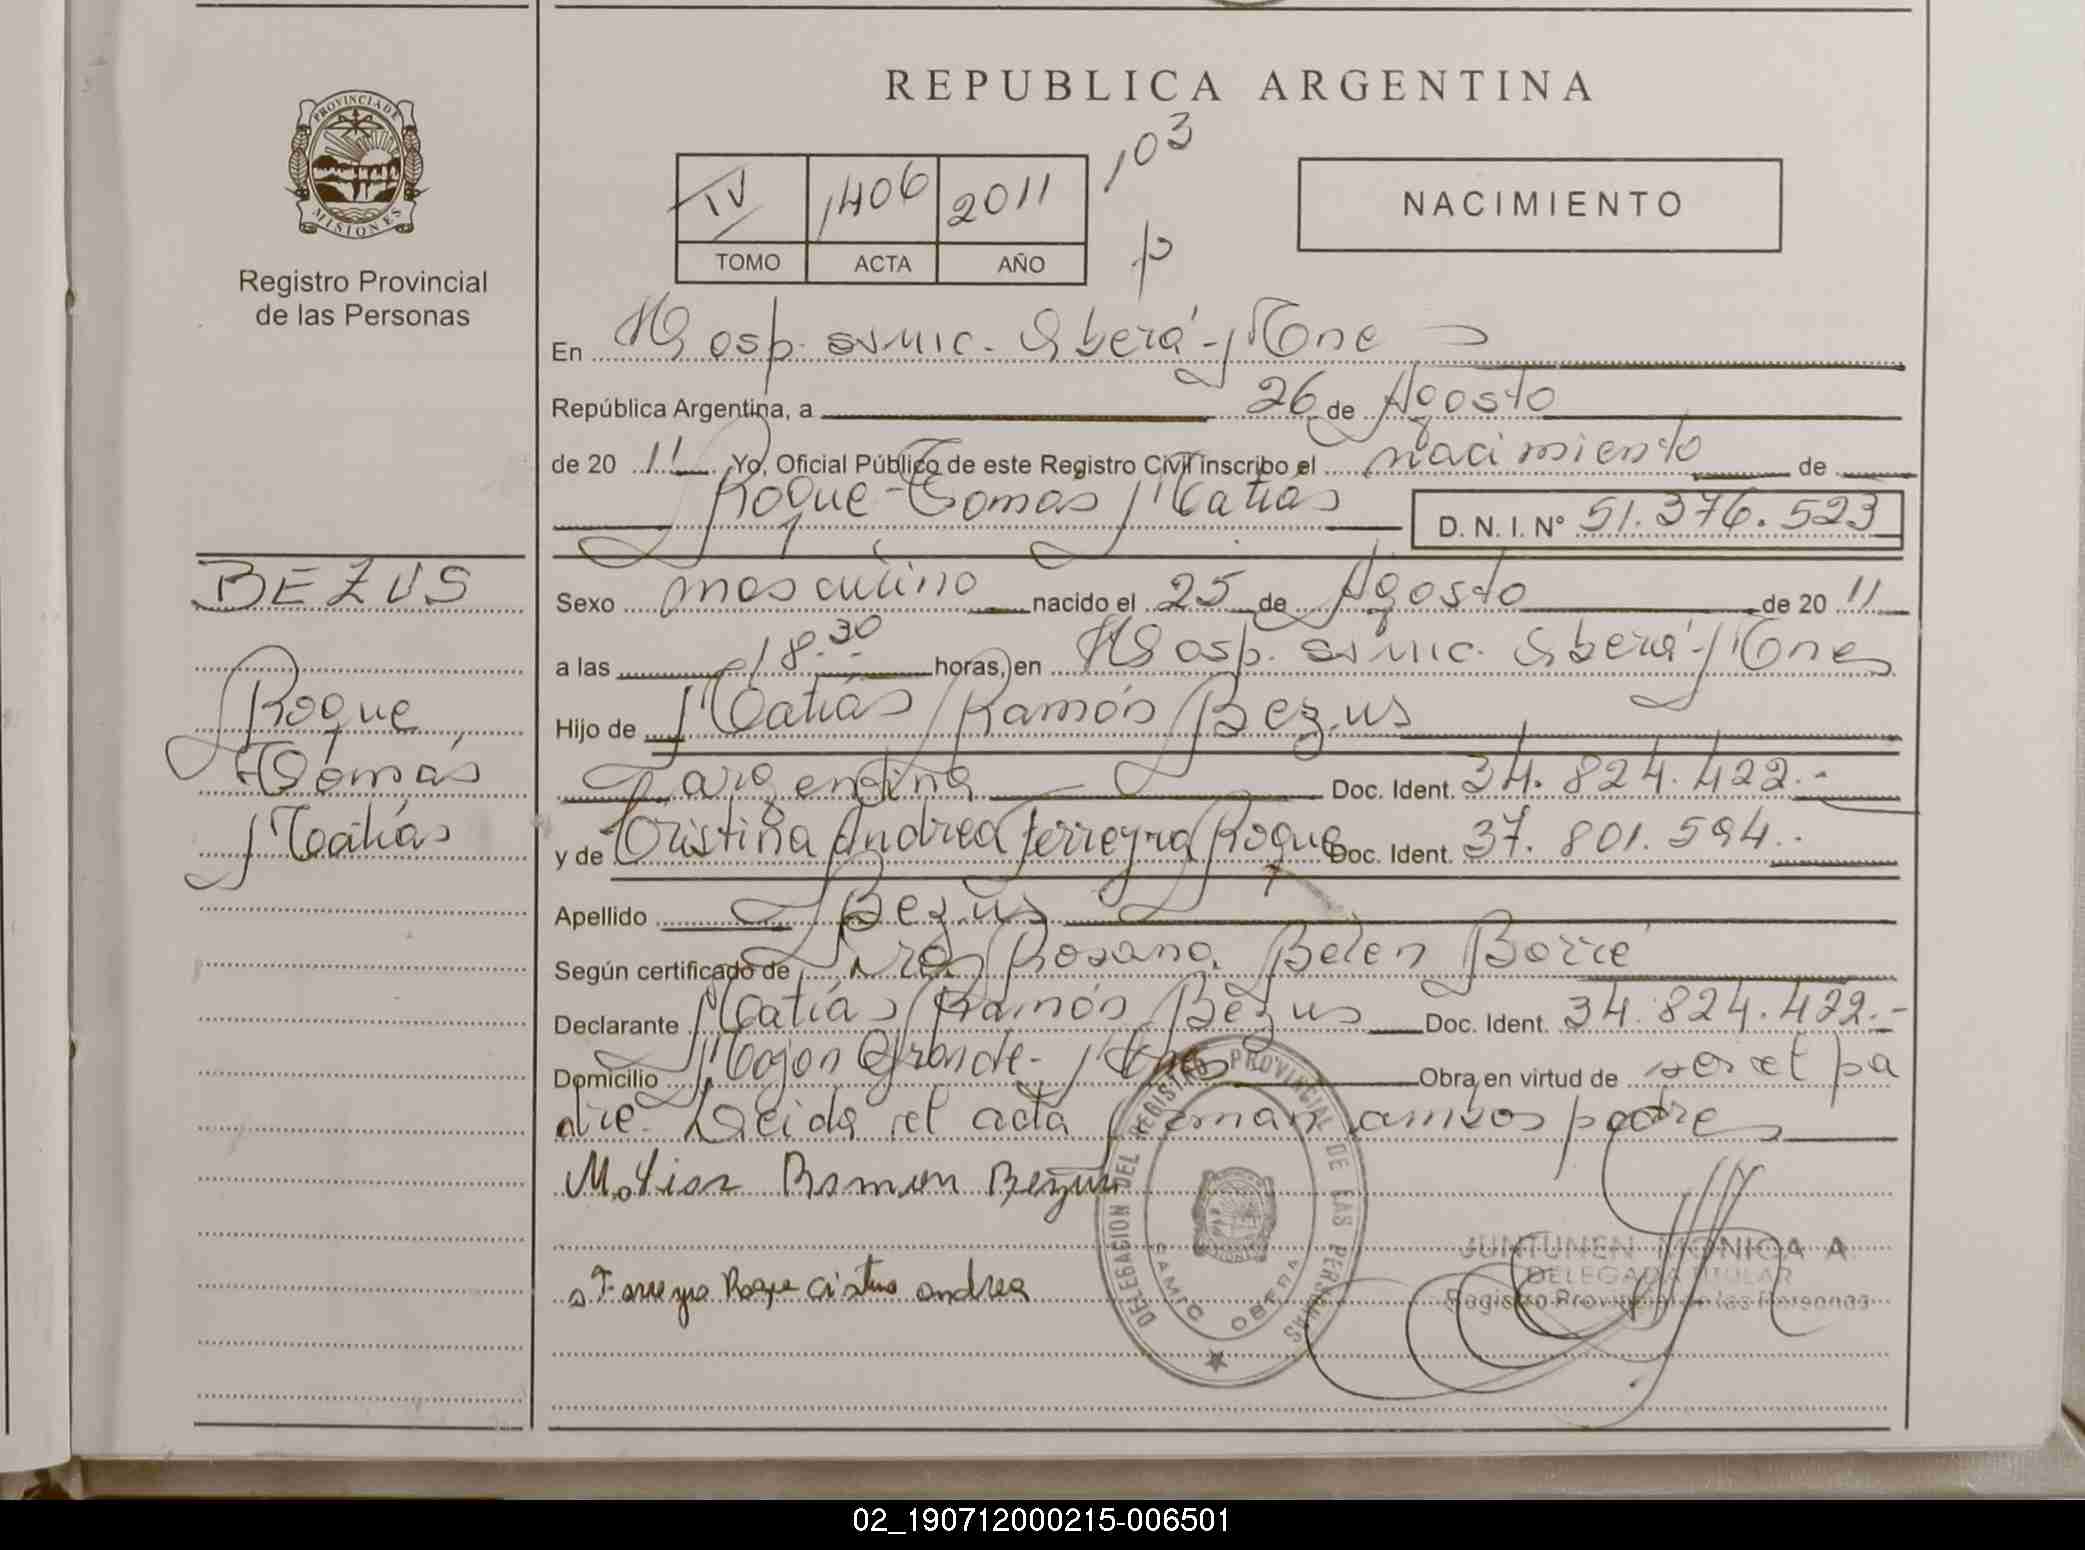 REPUBLICA ARGENTINA
PROVINCIA DE
MISIONES
Registro Provincial
de las Personas
IV 1406 2011
TOMO ACTA AÑO
103
p
NACIMIENTO
En Hosp. SAMIC. Oberá - Mnes
República Argentina, a 26 de Agosto
de 20 11 Yo, Oficial Público de este Registro Civil inscribo el nacimiento de
Roque Tomás Matías D. N. I. Nº 51.376.523
BEZUS
Roque
Tomás
Matías
Sexo masculino nacido el 25 de Agosto de 20 11
a las 18.30 horas, en Hosp. SAMIC. Oberá - Mnes
Hijo de Matías Ramón Bezus
argentina Doc. Ident. 34.824.422.-
y de Cristina Andrea Ferreyra Roque Doc. Ident. 37.801.594.-
Apellido Bezus
Según certificado de Dra Rosana Belen Borré
Declarante Matías Ramón Bezus Doc. Ident. 34.824.422.-
Domicilio Mojon Grande - Mnes Obra en virtud de ser el pa
dre. Leida el acta firman ambos padres
Matias Ramon Bezus
Ferreyra Roque Cristina andrea
DELEGACION DEL REGISTRO PROVINCIAL DE LAS PERSONAS
SAMIC OBERA
JUNTUNEN MONICA A
DELEGADA TITULAR
Registro Provincial de las Personas
02_190712000215-006501